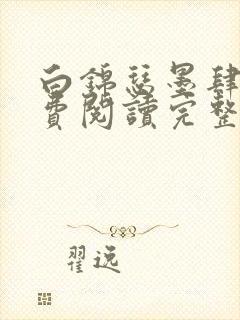 白錦瑟墨肆
費閱讀完整
翟逸